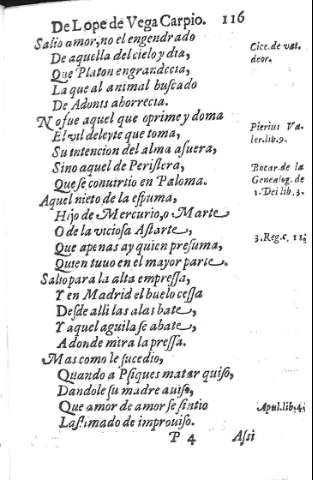 De Lope de Vega Carpio. 116
Salio amor, no el engendrado
De aquella del cielo y dia,
Que Platon engrandecia,
La que al animal buscado
De Adonis aborrecia.
Cice. de nat.
deor.
No fue aquel que oprime y doma
El vil deleyte que toma,
Su intencion del alma afuera,
Sino aquel de Peristera,
Que se conuirtio en Paloma.
Pierius Va-
ler. lib. 9.
Bocar. de la
Genealog. de
l. Dei lib. 3.
Aquel nieto de la espuma,
Hijo de Mercurio, o Marte
O de la viciosa Astarte,
Que apenas ay quien presuma,
Quien tuuo en el mayor parte.
3. Reg. c. 11.
Salio para la alta empressa,
Y en Madrid el buelo cessa
Desde alli las alas bate,
Y aquel aguila se abate,
Adonde mira la pressa.
Mas como le sucedio,
Quando a Psiques matar quiso,
Dandole su madre auiso,
Que amor de amor se sintio
Lastimado de improuiso.
Apul. lib. 4.
P 4 Assi